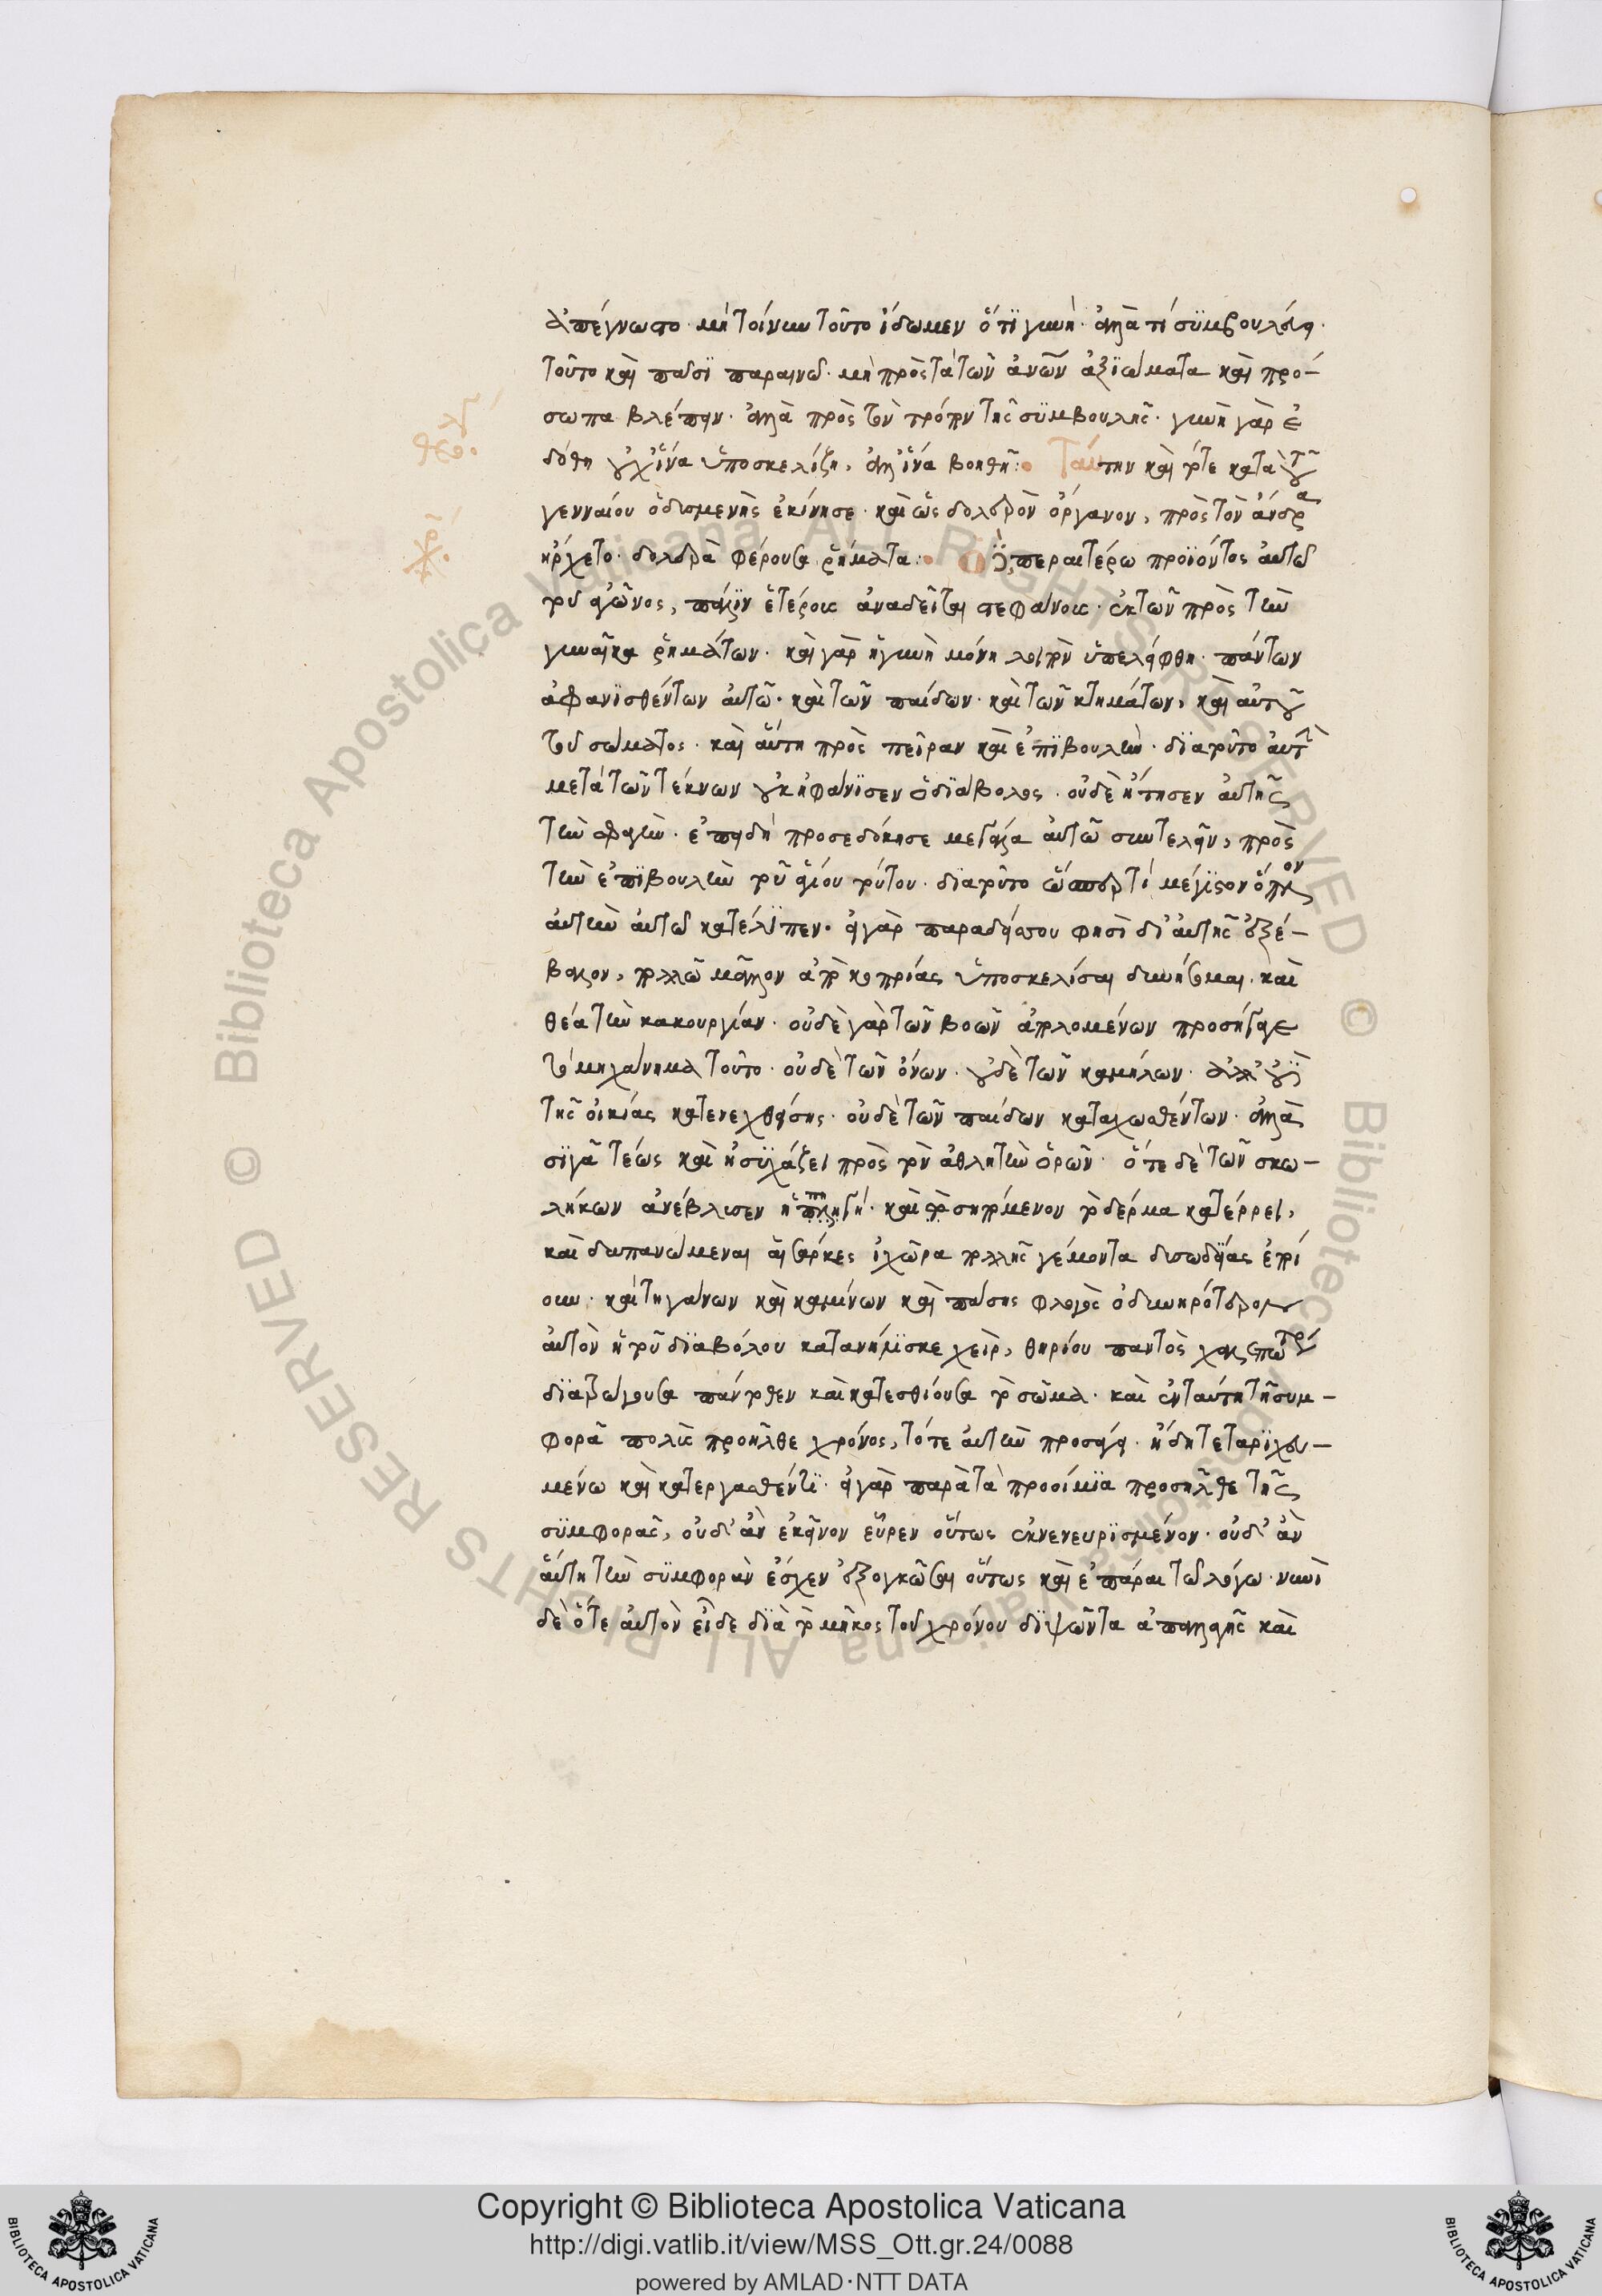 ἀπέγνωστο· μὴ τοίνυν τοῦτο ἴδωμεν ὅτι γυνή· ἀλλὰ τί συμβουλεύει·
τοῦτο καὶ πᾶσι παραινῶ· μὴ πρὸς τὰ τῶν ἀνῶν ἀξιώματα καὶ πρό-
σωπα βλέπειν· ἀλλὰ πρὸς τὸν τρόπον τῆς συμβουλῆς· γυνὴ γὰρ ἐ
δόθη οὐχ ἵνα ὑποσκελίζη, ἀλλ' ἵνα βοηθῆ: Ταύτην καὶ τότε κατὰ τοῦ
γενναίου ὁ δυσμενὴς ἐκίνησε· καὶ ὡς δολερὸν ὄργανον, πρὸς τὸν ἄνδρα
ἤρχετο· δολερὰ φέρουσα ῥήματα: περαιτέρω προϊόντος αὐτῶ
τοῦ ἀγῶνος, πάλιν ἑτέροις ἀναδεῖται στεφάνοις· ἐκ τῶν πρὸς τὴν
γυναῖκα ῥημάτων· καὶ γὰρ ἡ γυνὴ μόνη λοιπὸν ὑπελείφθη· πάντων
ἀφανισθέντων αὐτῶ· καὶ τῶν παίδων· καὶ τῶν κτημάτων, καὶ αὐτοῦ
τοῦ σώματος· καὶ αὕτη πρὸς πεῖραν καὶ ἐπιβουλὴν· διὰ τοῦτο αὐτὴν
μετὰ τῶν τέκνων οὐκ ἠφάνισεν ὁ διάβολος· οὐδὲ ἤτησεν αὐτῆς
τὴν σφαγὴν· ἐπειδὴ προσεδόκησε μεγάλα αὐτῶ συντελεῖν, πρὸς
τὴν ἐπιβουλὴν τοῦ ἁγίου τούτου· διὰ τοῦτο ὥσπερ τί μέγιστον ὅπλον
αὐτὴν αὐτῶ κατέλιπεν· εἰ γὰρ παραδείσου φησὶ δι' αὐτῆς ἐξέ-
βαλον, πολλῶ μᾶλλον ἀπὸ κοπρίας ὑποσκελίσαι δυνήσομαι· καὶ
θέα τὴν κακουργίαν· οὐδὲ γὰρ τῶν βοῶν ἀπολομένων προσήγαγε
τὸ μηχάνημα τοῦτο· οὐδὲ τῶν ὄνων· οὐδὲ τῶν καμήλων· ἀλλ' οὐδὲ
τῆς οἰκίας κατενεχθείσης· οὐδὲ τῶν παίδων καταχωσθέντων· ἀλλὰ
σιγᾶ τέως καὶ ἡσυχάζει πρὸς τὸν ἀθλητὴν ὁρῶν· ὅτε δὲ τῶν σκω-
λήκων ἀνέβλυσεν ἡ πηγή· καὶ σηπόμενον τὸ δέρμα κατέρρει,
καὶ δαπανώμεναι αἱ σάρκες ἰχῶρα πολλῆς γέμοντα δυσωδίας ἐποί
ουν· καὶ τηγάνων καὶ καμίνων καὶ πάσης φλογὸς ὀδυνηρότερον
αὐτὸν ἡ τοῦ διαβόλου κατανήλισκε χεὶρ, θηρίου παντὸς χαλεπώτερον
διατρώγουσα πάντοθεν καὶ κατεσθίουσα τὸ σῶμα· καὶ ἐν ταύτη τῆ συμ-
φορᾶ πολὺς προῆλθε χρόνος, τότε αὐτὴν προσάγει· ἤδη τεταριχευ-
μένω καὶ κατεργασθέντι· εἰ γὰρ παρὰ τὰ προοίμια προσῆλθε τῆς
συμφορᾶς, οὐδ' ἂν ἐκεῖνον εὗρεν οὕτως ἐκνενευρισμένον· οὐδ' ἂν
αὕτη τὴν συμφορὰν ἔσχεν ἐξογκῶσαι οὕτως καὶ ἐπᾶραι τῶ λόγω· νυνὶ
δὲ ὅτε αὐτὸν εἶδε διὰ τὸ μῆκος τοῦ χρόνου διψῶντα ἀπαλλαγῆς καὶ
Copyright © Biblioteca Apostolica Vaticana
http://digi.vatlib.it/view/MSS_Ott.gr.24/0088
powered by AMLAD·NTT DATA
BIBLIOTECA APOSTOLICA VATICANA
BIBLIOTECA APOSTOLICA VATICANA
© Biblioteca Apostolica Vaticana ALL RIGHTS RESERVED © Biblioteca Apostolica Vaticana ALL RIGHTS RESERVED